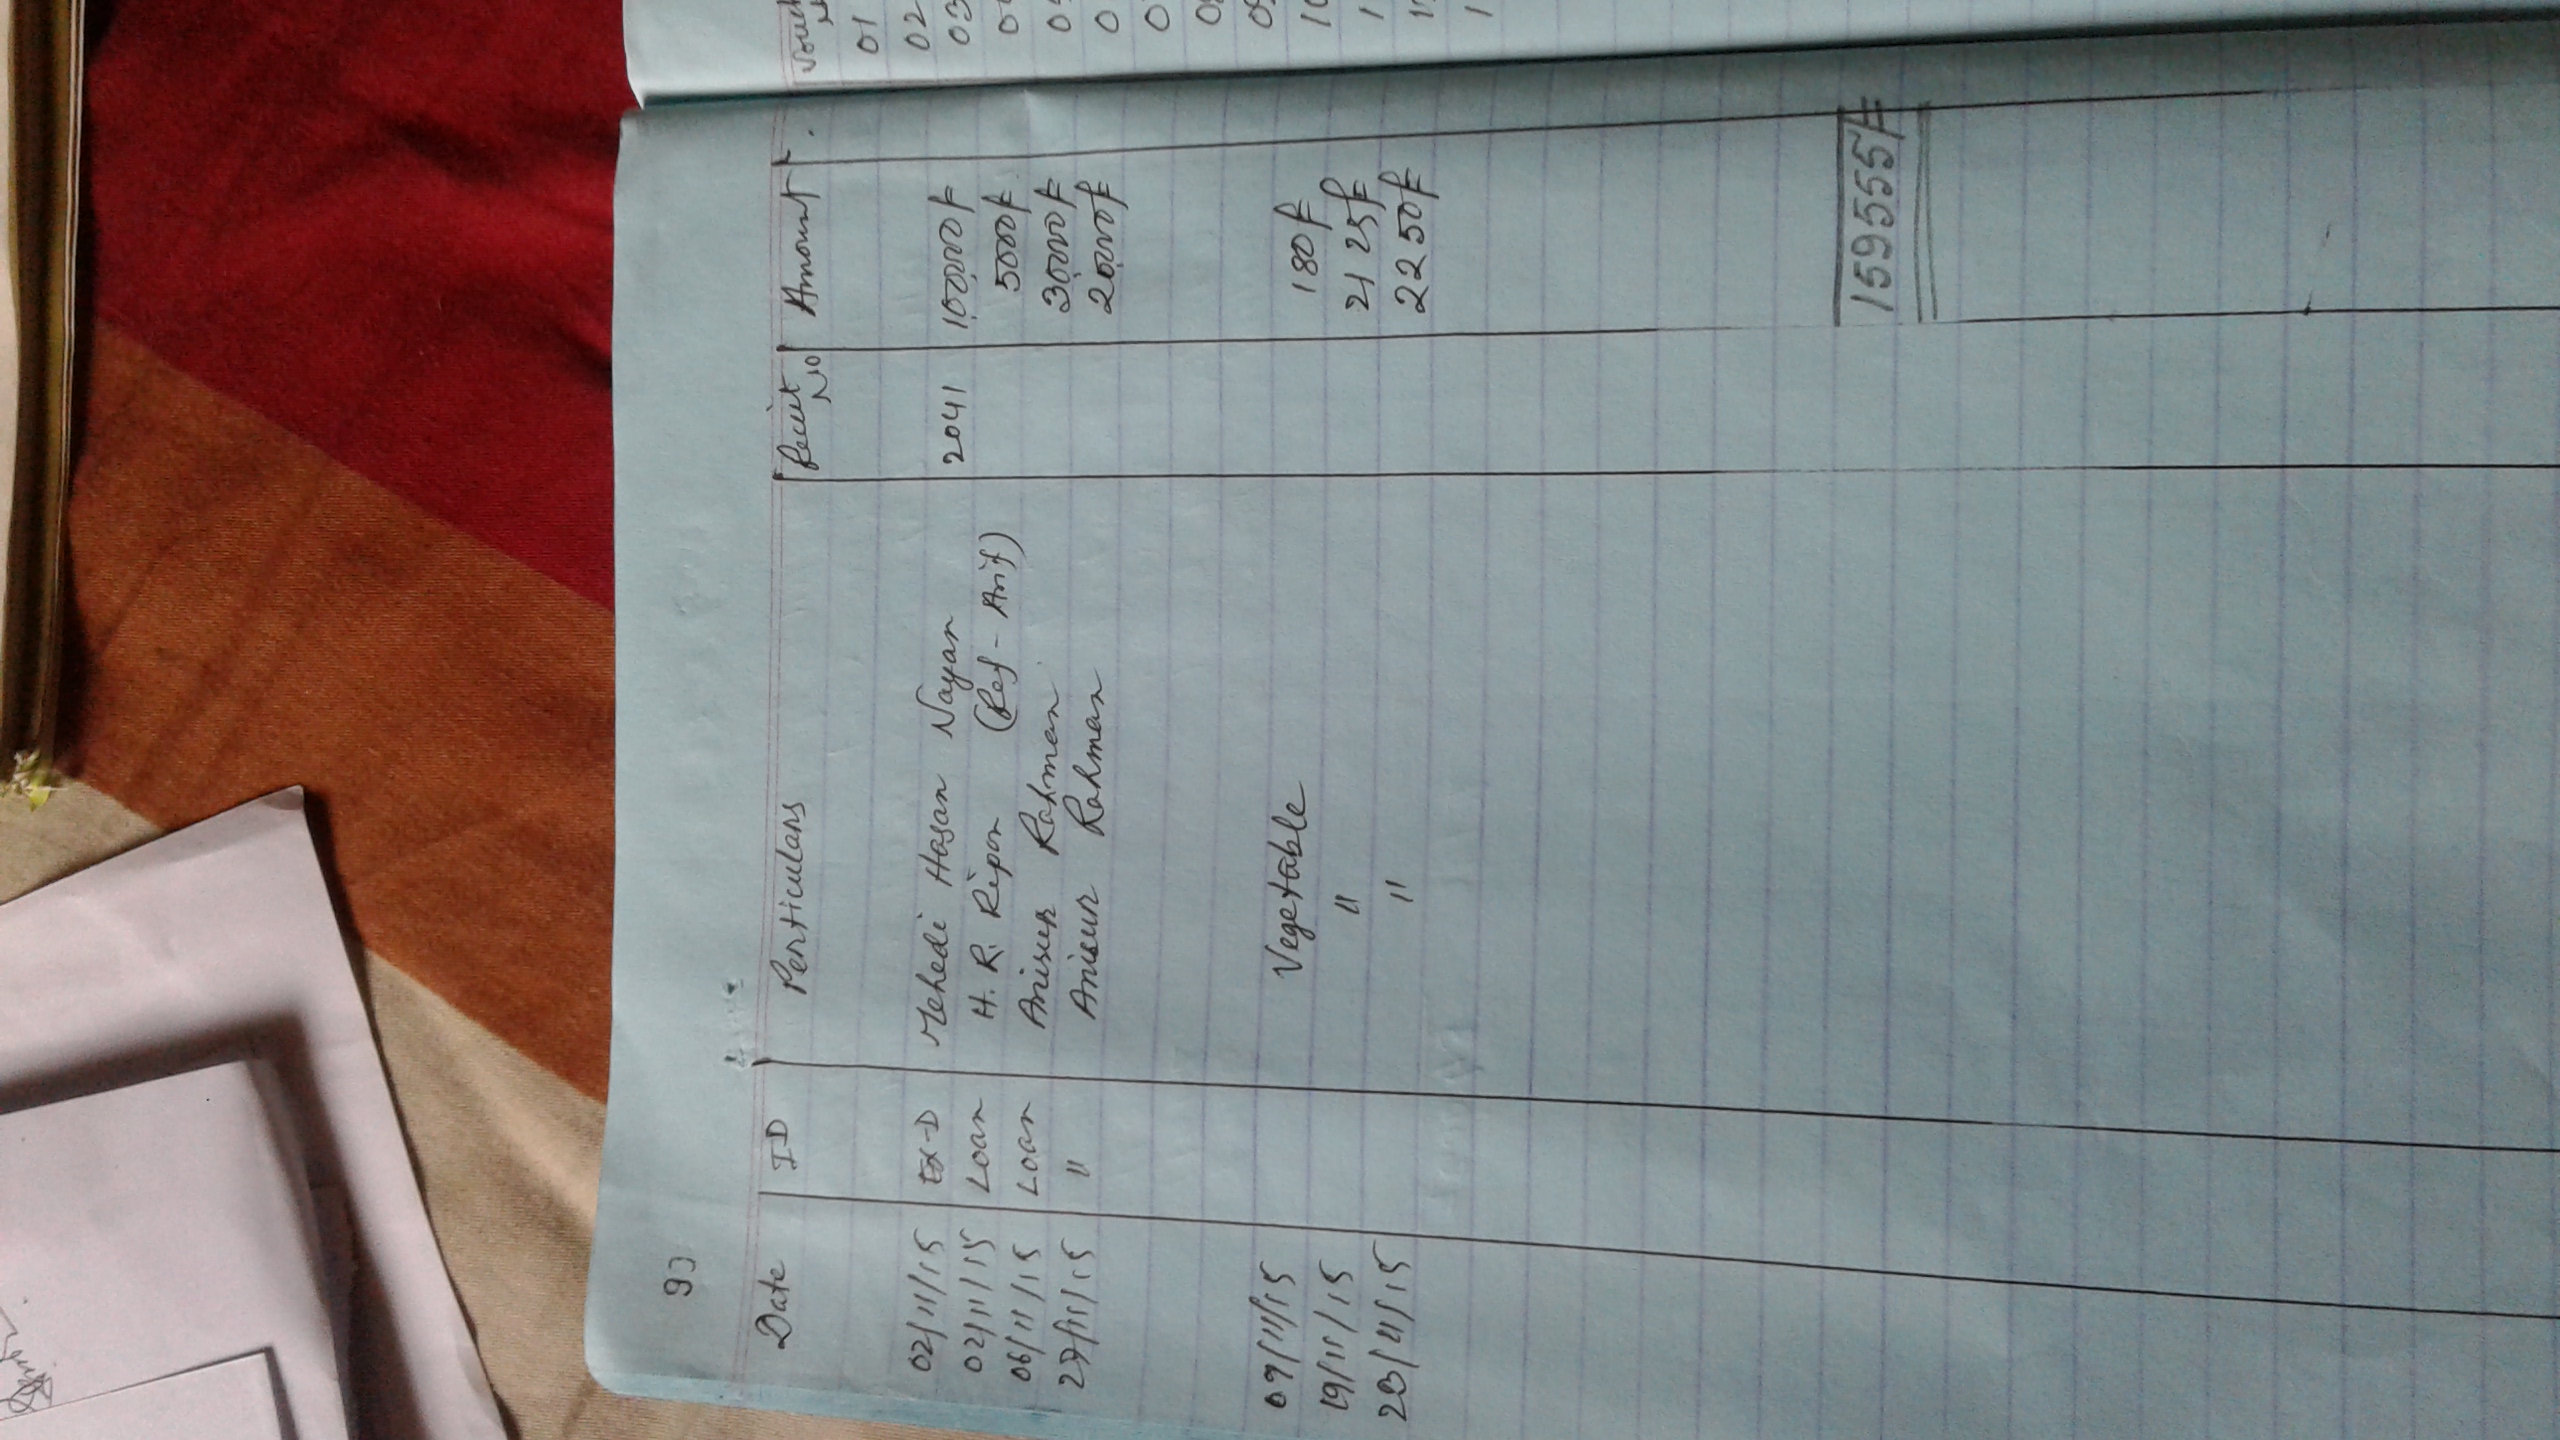 Date ID Perticulars Reciit No Amount
02/11/15 EX-D Mehedi Hasan Nayan 2041 100,000/=
02/11/15 Loan H. R. Ripon (Ref - Arif) 5000/=
06/11/15 Loan Anisur Rahman 30000/=
27/11/15 " Anisur Rahman 20,000/=
09/11/15 Vegetable 180/=
19/11/15 " 2125/=
23/11/15 " 2250/=
159555/=
01
02
03